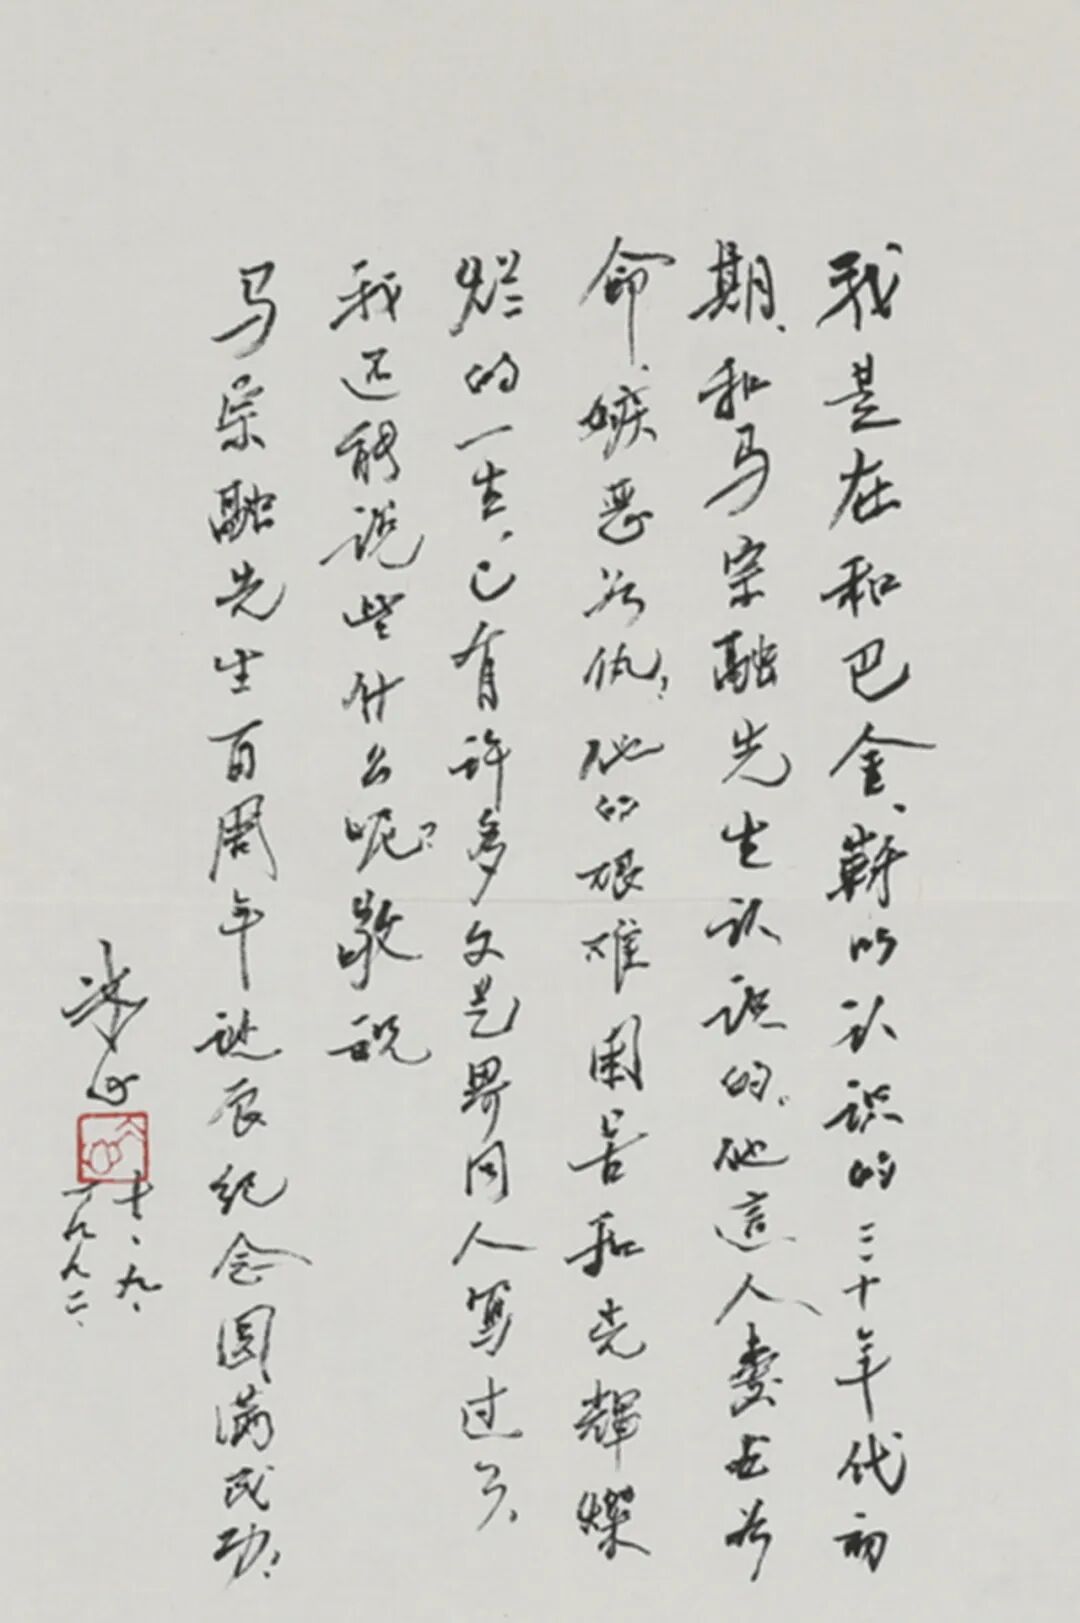 我是在和巴金、靳以认识的三十年代初
期、和马宗融先生认识的。他這人爱出如
命、嫉恶如仇。他的艰难困苦和光輝燦
烂的一生、已有许多文艺界同人写过了、
我还能说些什么呢？敬祝
马宗融先生百周年诞辰纪念圆满成功！
十、九、
一九九二、